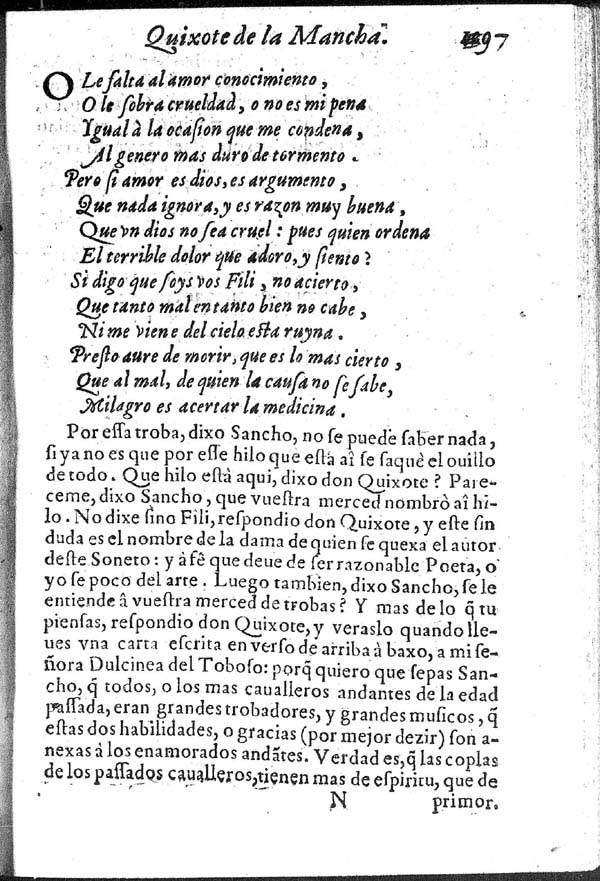 Quixote de la Mancha. 97
O Le falta al amor conocimiento,
O le ſobra crueldad, o no es mi pena
Ygual à la ocaſion que me condena,
Al genero mas duro de tormento.
Pero ſi amor es dios, es argumento,
Que nada ignora, y es razon muy buena,
Que vn dios no ſea cruel: pues quien ordena
El terrible dolor que adoro, y ſiento?
Si digo que ſoys vos Fili, no acierto,
Que tanto mal en tanto bien no cabe,
Ni me viene del cielo eſta ruyna.
Preſto aure de morir, que es lo mas cierto,
Que al mal, de quien la cauſa no ſe ſabe,
Milagro es acertar la medicina.
Por eſſa troba, dixo Sancho, no ſe puede ſaber nada,
ſi ya no es que por eſſe hilo que eſtà aî ſe ſaque el ouillo
de todo. Que hilo eſtà aqui, dixo don Quixote? Pare-
ceme, dixo Sancho, que vueſtra merced nombrò aî hi-
lo. No dixe ſino Fili, reſpondio don Quixote, y eſte ſin
duda es el nombre de la dama de quien ſe quexa el autor
deſte Soneto: y à fê que deue de ſer razonable Poeta, o
yo ſe poco del arte. Luego tambien, dixo Sancho, ſe le
entiende â vueſtra merced de trobas? Y mas de lo q̃ tu
pienſas, reſpondio don Quixote, y veraslo quando lle-
ues vna carta eſcrita en verſo de arriba à baxo, a mi ſe-
ñora Dulcinea del Toboſo: porq̃ quiero que ſepas San-
cho, q̃ todos, o los mas caualleros andantes de la edad
paſſada, eran grandes trobadores, y grandes muſicos, q̃
eſtas dos habilidades, o gracias (por mejor dezir) ſon a-
nexas à los enamorados andãtes. Verdad es, q̃ las coplas
de los paſſados caualleros, tienen mas de eſpiritu, que de
N primor.